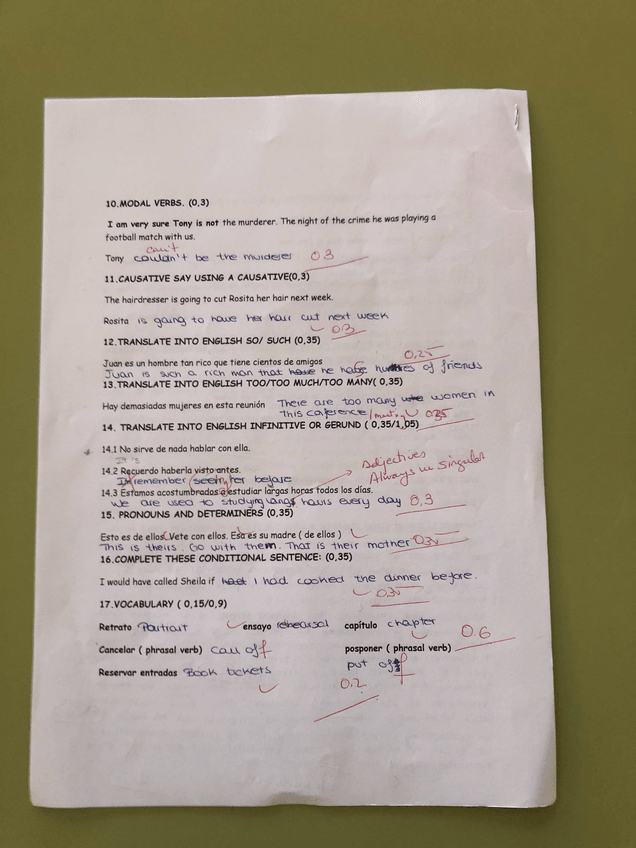 10.MODAL VERBS. (0,3)
I am very sure Tony is not the murderer. The night of the crime he was playing a
football match with us.
can't
Tony couldn't be the murderer 0.3
11.CAUSATIVE SAY USING A CAUSATIVE(0,3)
The hairdresser is going to cut Rosita her hair next week.
Rosita is going to have her hair cut next week
0.3
12.TRANSLATE INTO ENGLISH SO/ SUCH (0,35)
Juan es un hombre tan rico que tiene cientos de amigos 0,25
Juan is such a rich man that he of friends
13.TRANSLATE INTO ENGLISH TOO/TOO MUCH/TOO MANY( 0,35)
Hay demasiadas mujeres en esta reunión There are too many women in
this 035
14. TRANSLATE INTO ENGLISH INFINITIVE OR GERUND ( 0,35/1,05)
14.1 No sirve de nada hablar con ella.
It's
Adjectives
14.2 Recuerdo haberla visto antes. Always in singular
I remember seeing her before
14.3 Estamos acostumbrados a estudiar largas horas todos los días.
We are used to studying hours every day 0,3
15. PRONOUNS AND DETERMINERS (0,35)
Esto es de ellos. Vete con ellos. Esa es su madre ( de ellos )
This is theirs. Go with them. That is their mother
16.COMPLETE THESE CONDITIONAL SENTENCE: (0,35)
I would have called Sheila if I had cooked the dinner before.
17.VOCABULARY ( 0,15/0,9)
Retrato Portrait ensayo rehearsal capítulo chapter
0.6
Cancelar ( phrasal verb) call off posponer ( phrasal verb)
put off
Reservar entradas Book tickets
0.2